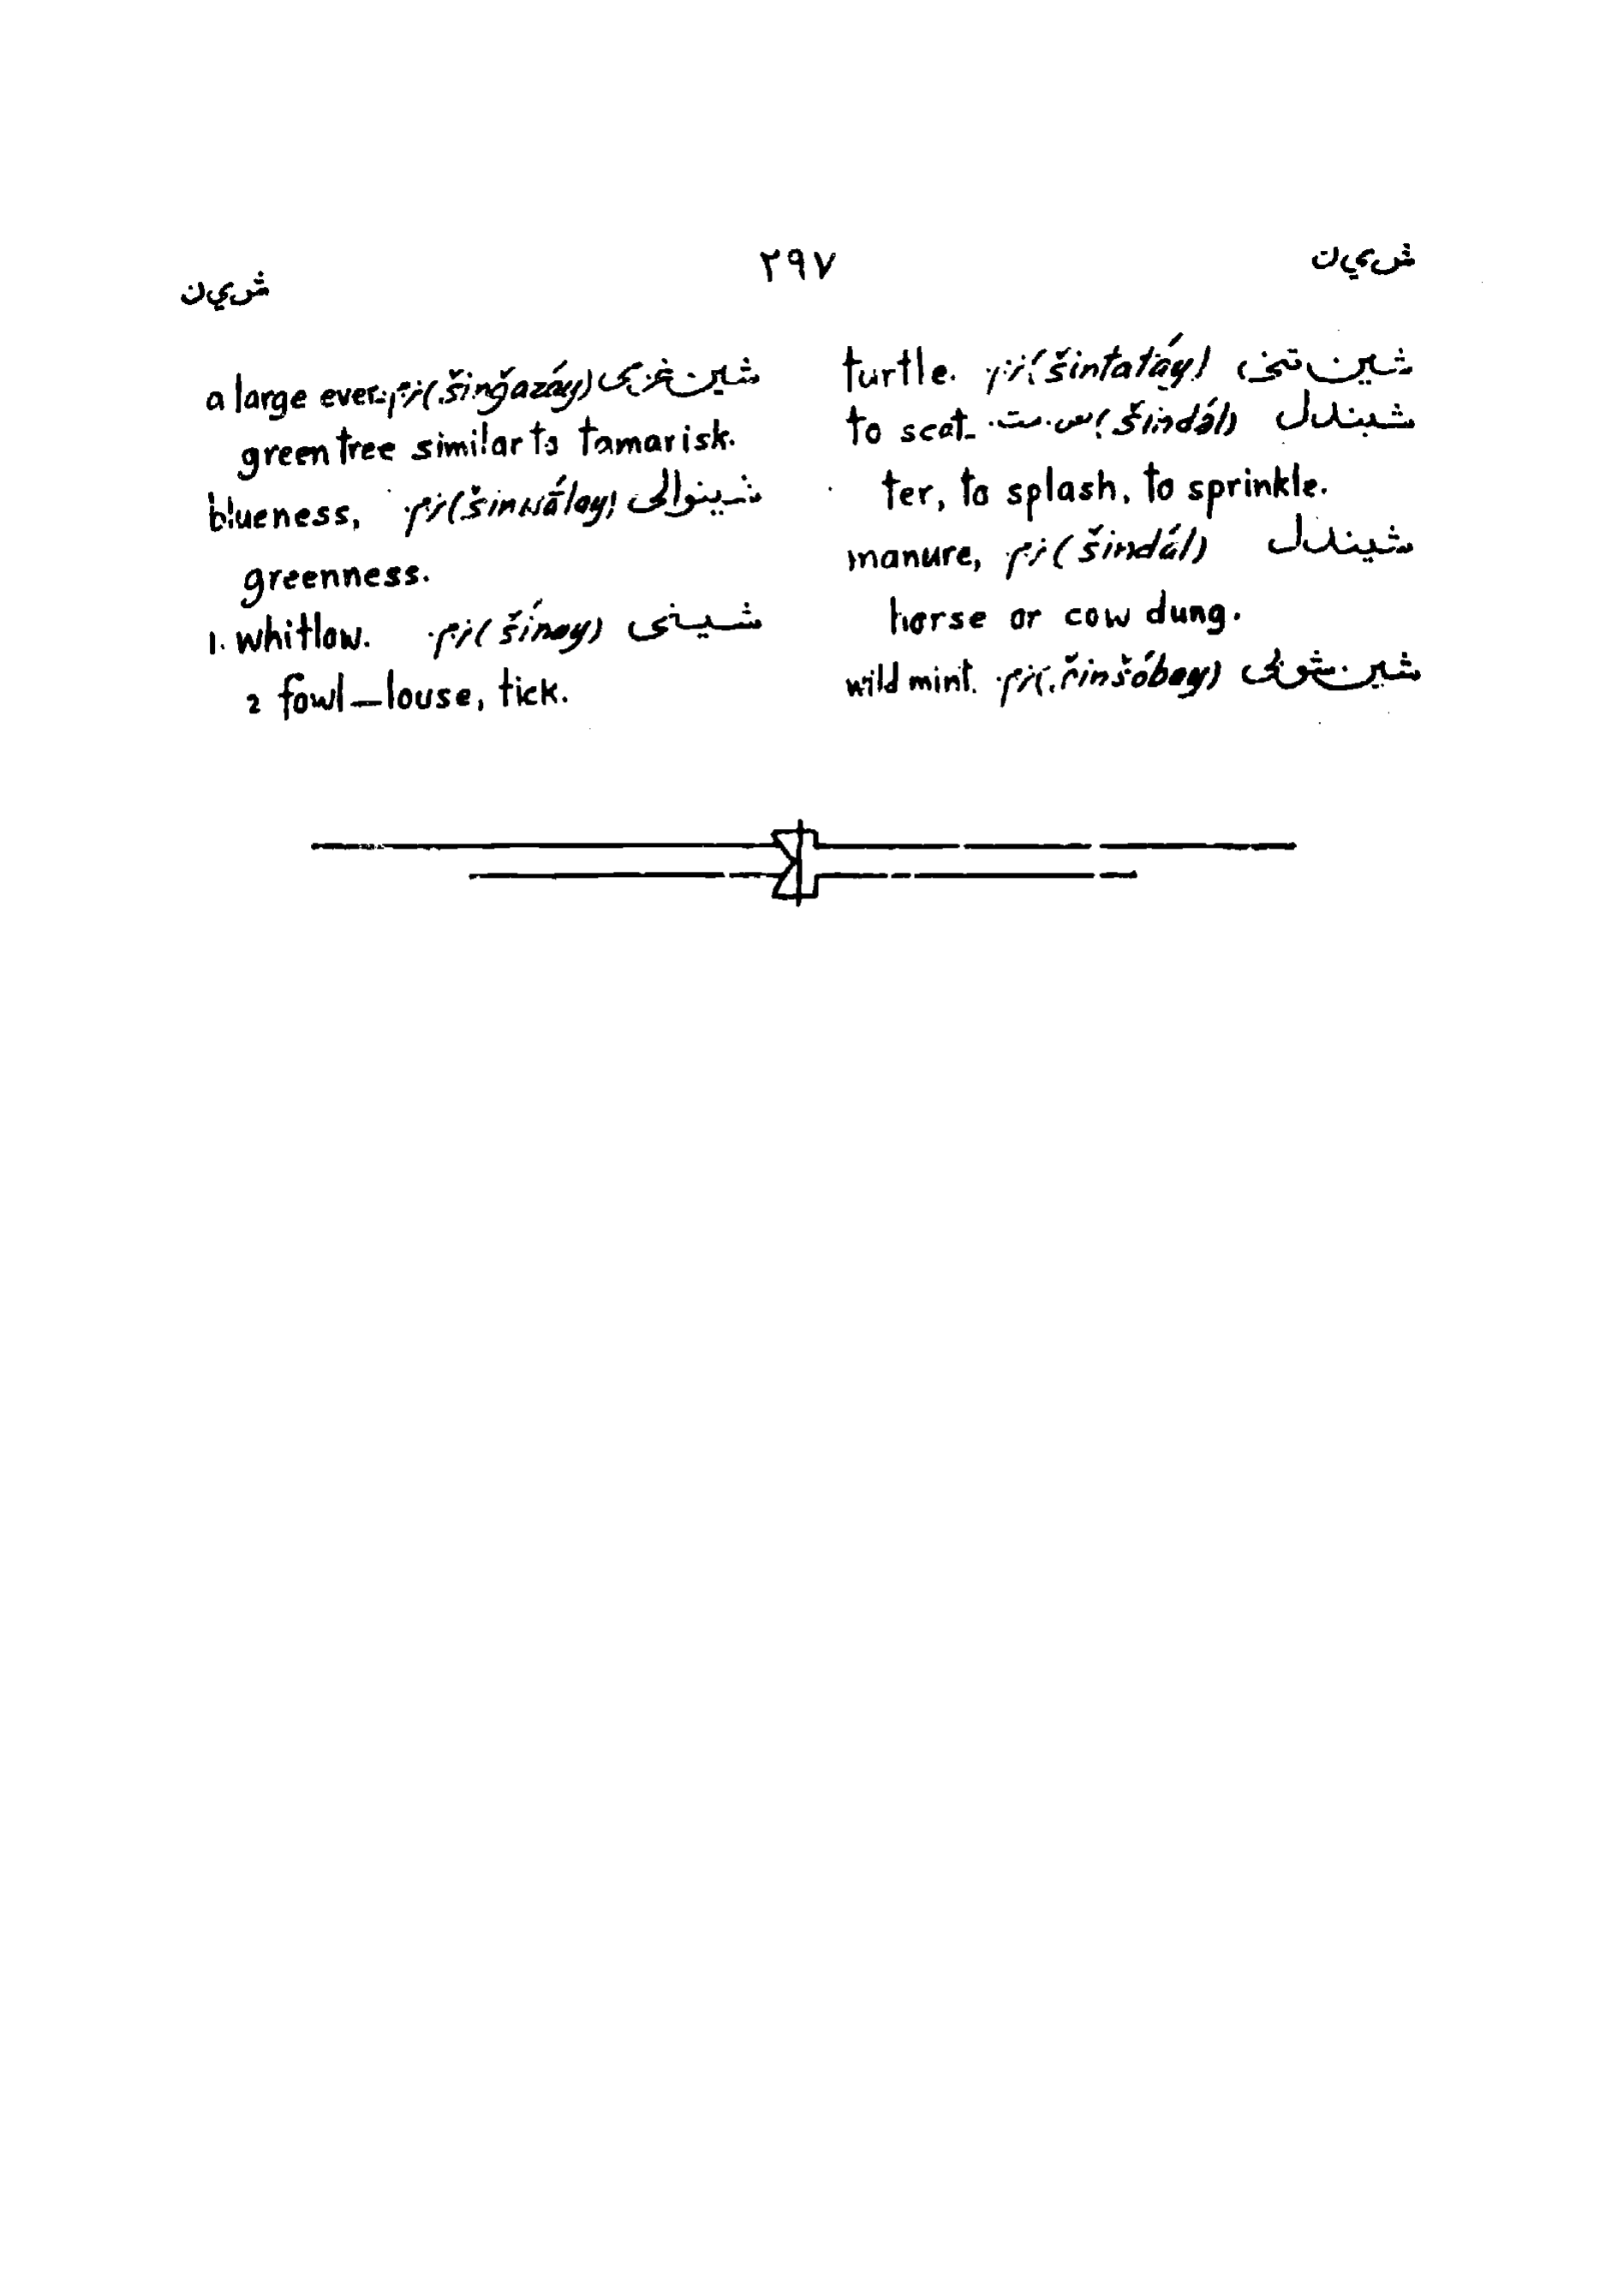 شین ۲۹۷ شین
شین تتی (šintatáy) ن.م. turtle.
شیندل (šində́l) س.مت. to scat-
ter, to splash, to sprinkle.
شیندل (šindál) ن.م. manure,
horse or cow dung.
شین شوبی (šinšóbay) ن.م. wild mint.
شین غزی (šinğazáy) ن.م. a large ever-
green tree similar to tamarisk.
شینوالی (šinwā́lay) ن.م. blueness,
greenness.
شینی (šínay) ن.م. 1. whitlow.
2 fowl-louse, tick.